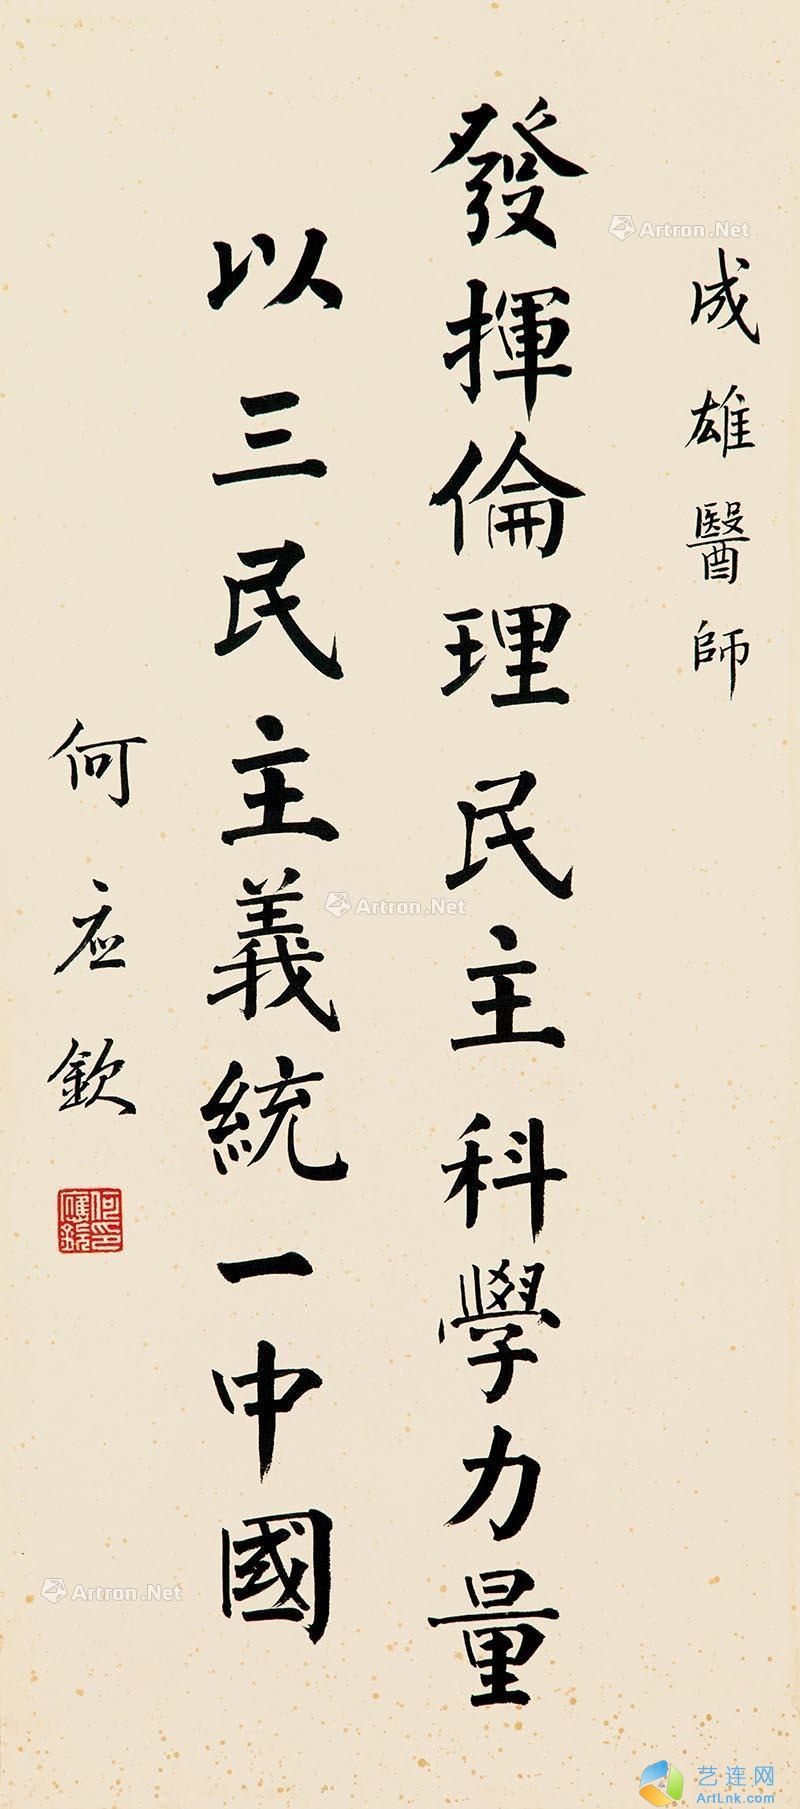 成雄醫師
發揮倫理民主科學力量
以三民主義統一中國
何应欽
何印應欽
Artron.Net
Artron.Net
Artron.Net
艺连网
ArtLnk.com